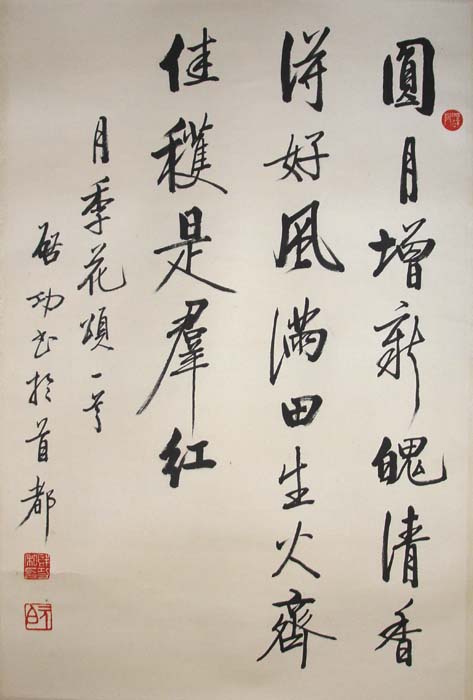 圓月增新魄清香
得好風滿田生火齊
佳穫是羣紅
月季花頌一首
啓功書於首都